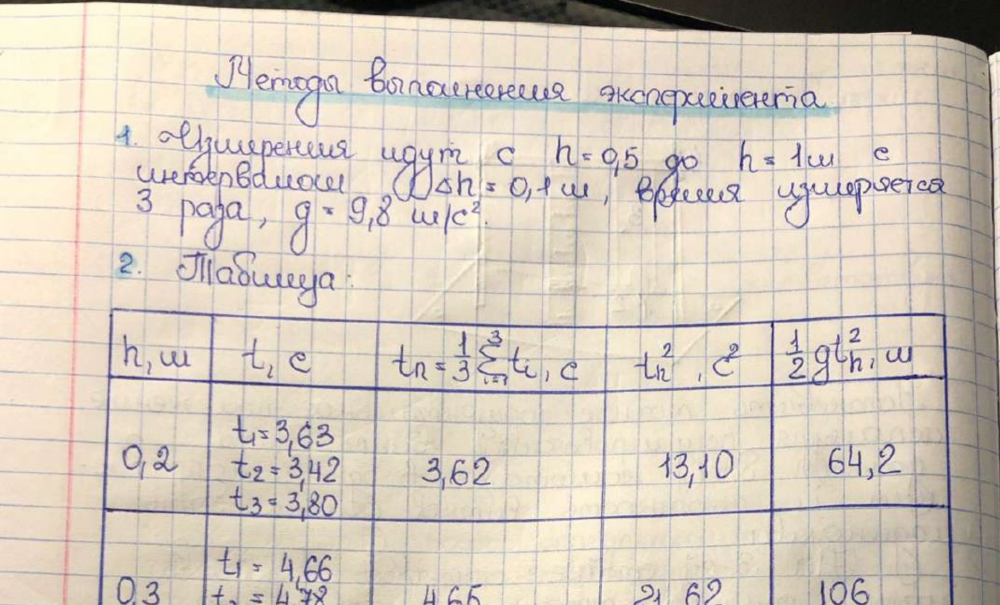 Методы выполнения эксперимента
1. Измерения идут с h = 0,5 до h = 1м с
интервалом Δh = 0,1 м, время измеряется
3 раза, g = 9,8 м/с².
2. Таблица:
h, м t, с tₙ = 1/3 Σ³ᵢ₌₁ tᵢ, с tₙ², с² 1/2 gtₙ², м
t₁ = 3,63
0,2 t₂ = 3,42 3,62 13,10 64,2
t₃ = 3,80
t₁ = 4,66
0,3 t₂ = 4,78 4,65 21,62 106